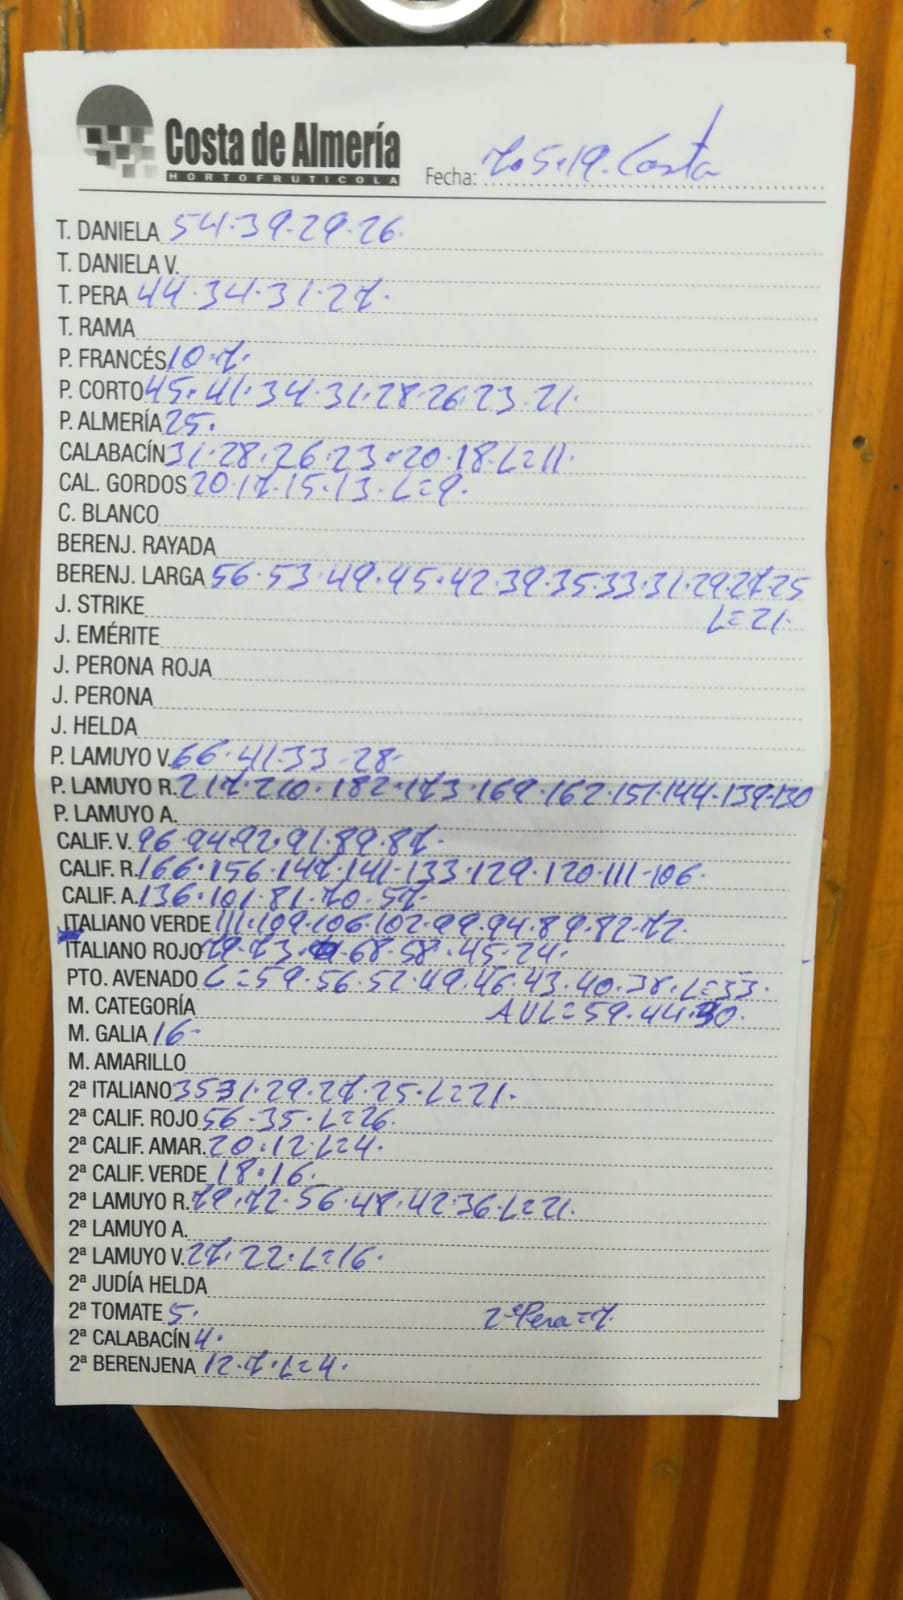 Costa de Almería
HORTOFRUTICOLA
Fecha: 7.5.19. Costa
T. DANIELA 54.39.29.26.
T. DANIELA V.
T. PERA 44.34.31.27.
T. RAMA
P. FRANCÉS 10.7.
P. CORTO 45.41.34.31.28.26.23.21.
P. ALMERÍA 25.
CALABACÍN 31.28.26.23.20.18.L=11.
CAL. GORDOS 20.17.15.13.L=9.
C. BLANCO
BERENJ. RAYADA
BERENJ. LARGA 56.53.49.45.42.39.35.33.31.29.27.25
L=21.
J. STRIKE
J. EMÉRITE
J. PERONA ROJA
J. PERONA
J. HELDA
P. LAMUYO V. 66.41.33.28.
P. LAMUYO R. 217.210.182.173.169.162.151.144.139.130
P. LAMUYO A.
CALIF. V. 96.94.92.91.89.87.
CALIF. R. 166.156.147.141.133.129.120.111.106.
CALIF. A. 136.101.81.70.57.
ITALIANO VERDE 111.109.106.102.99.94.89.82.72.
ITALIANO ROJO 79.73.68.58.45.24.
PTO. AVENADO L=59.56.52.49.46.43.40.38.L=33.
M. CATEGORÍA AVL=59.44.30.
M. GALIA 16.
M. AMARILLO
2ª ITALIANO 35 31.29.27.25.L=21.
2ª CALIF. ROJO 56.35.L=26.
2ª CALIF. AMAR. 20.12.L=4.
2ª CALIF. VERDE 18.16.
2ª LAMUYO R. 79.72.56.48.42.36.L=21.
2ª LAMUYO A.
2ª LAMUYO V. 27.22.L=16.
2ª JUDÍA HELDA
2ª TOMATE 5. 2ª Pera=7.
2ª CALABACÍN 4.
2ª BERENJENA 12.7.L=4.